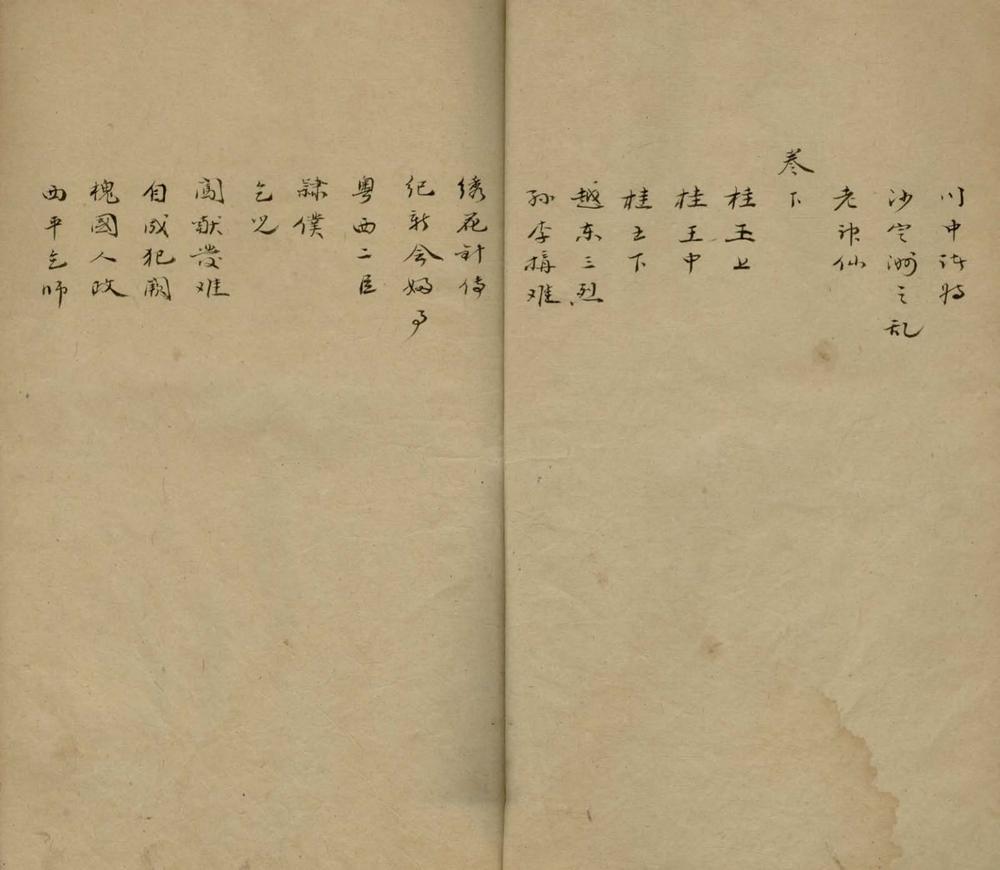 川中诸将
沙定洲之乱
老神仙
卷下
桂王上
桂王中
桂王下
越东三烈
孙李搆难
绣花针传
纪新会妇事
粤西二臣
隸僕
乞儿
闯献發难
自成犯阙
槐國人政
西平乞师